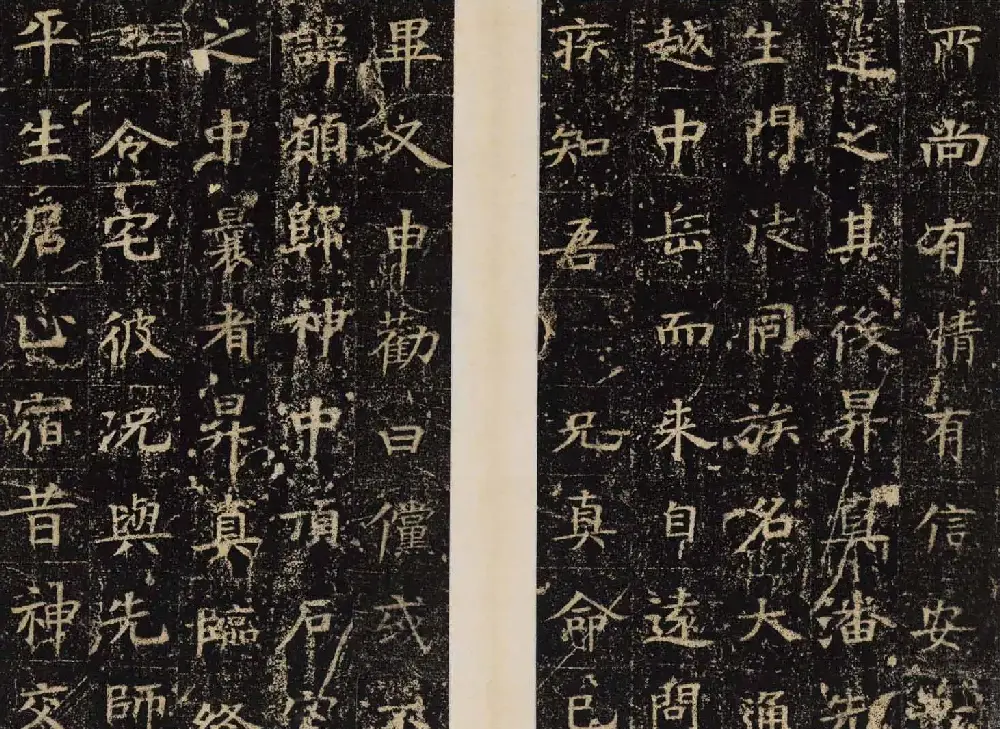 所尚有情有信安
達之其後昇真潘先
生門徒同族名大通
越中岳而来自遠問
疾知吾兄真命已
畢又申勸曰儻或不
諱願歸神中頂石室
之中曩者昇真臨終
令宅彼况與先師
平生居止宿昔神交